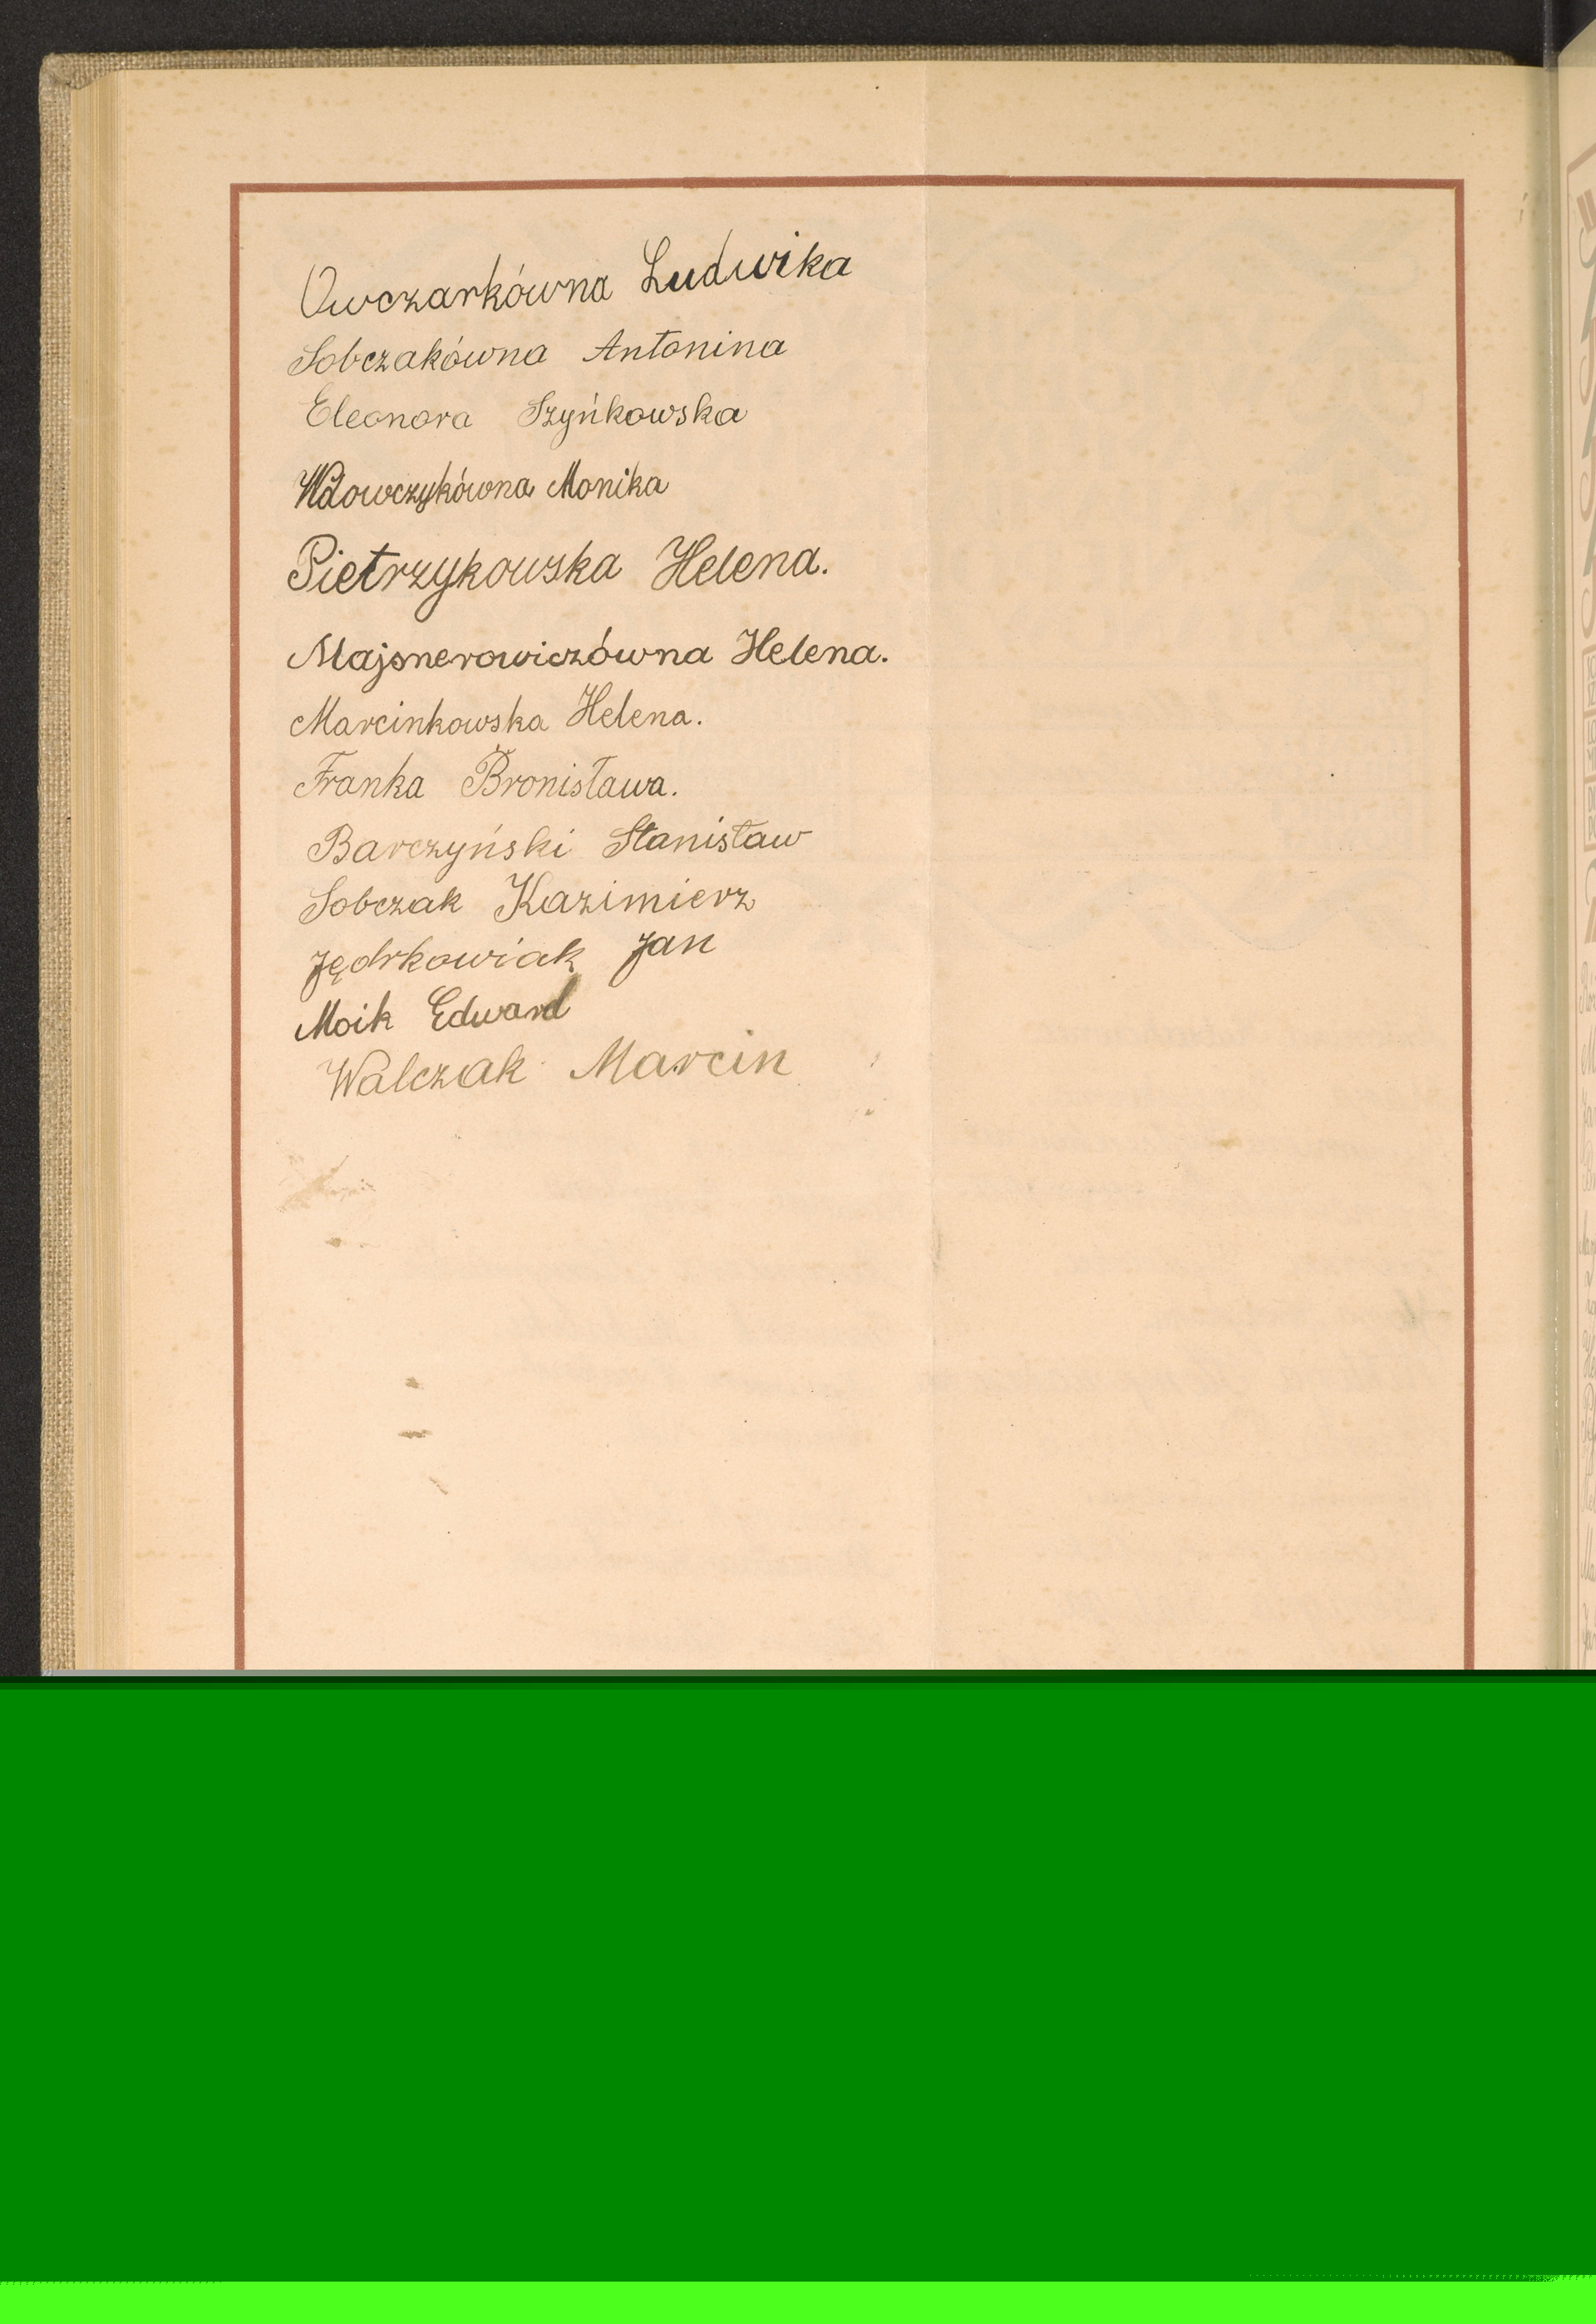 Owczarkówna Ludwika
Sobczakówna Antonina
Eleonora Szyńkowska
Wdowczykówna Monika
Pietrzykowska Helena.
Majsnerowiczówna Helena.
Marcinkowska Helena.
Franka Bronisława.
Barczyński Stanisław
Sobczak Kazimierz
Jędrkowiak Jan
Moik Edward
Walczak Marcin